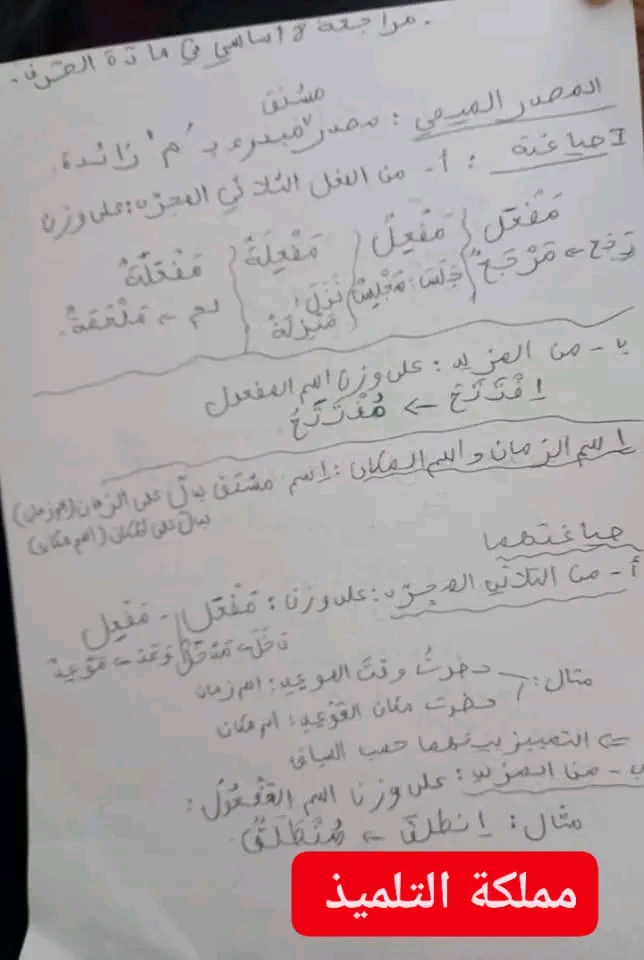 مراجعة 8 أساسي في مادة الصرف.
مشتق
المصدر الميمي : مصدر مبدوء بـ "م" زائدة.
I صياغته : أ - من الفعل الثلاثي المجرّد : على وزن
مَفْعَل { مَفْعِلٌ { مَفْعِلَةٌ { مَفْعَلَةٌ
رَجَعَ ← مَرْجَعٌ جَلَسَ : مَجْلِسٌ نَزَلَ : مَنْزِلَةٌ
ب - من المزيد : على وزن اسم المفعول
اِفْتَتَحَ ← مُفْتَتَحٌ
اسم الزمان واسم المكان : اسم مشتق يدلّ على الزمان (اسم زمان)
يدلّ على المكان (اسم مكان)
صياغتهما
أ - من الثلاثي المجرّد : على وزن : مَفْعَل - مَفْعِل
دَخَلَ ← مَدْخَلٌ وَعَدَ ← مَوْعِدٌ
مثال : حضرتُ وقتَ الموعِد : اسم زمان
حضرت مكان المَوْعِد : اسم مكان
⇐ التمييز بينهما حسب السياق
ب - من المزيد : على وزن اسم المَفْعُول :
مثال : اِنطلقَ ← مُنْطَلَقٌ
مملكة التلميذ